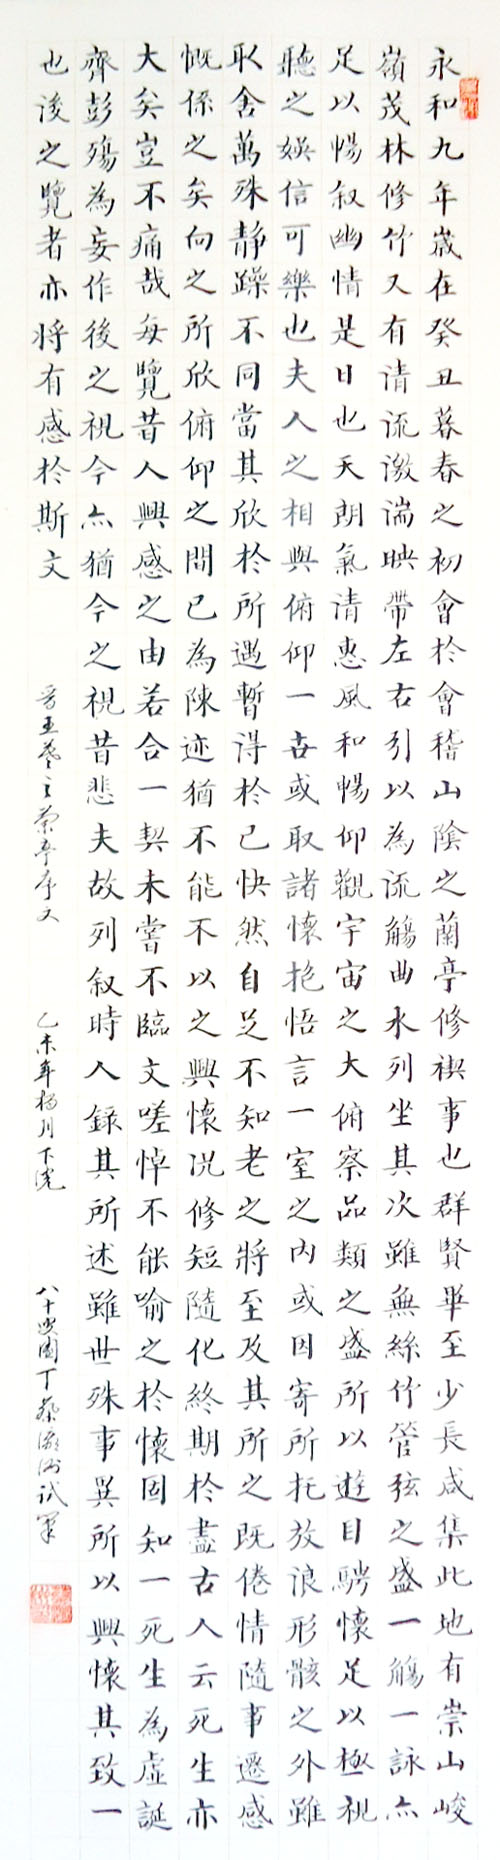 永和九年歲在癸丑暮春之初會於會稽山陰之蘭亭修禊事也群賢畢至少長咸集此地有崇山峻
嶺茂林修竹又有清流激湍映帶左右引以為流觴曲水列坐其次雖無絲竹管弦之盛一觴一詠亦
足以暢叙幽情是日也天朗氣清惠風和暢仰觀宇宙之大俯察品類之盛所以遊目騁懷足以極視
聽之娛信可樂也夫人之相與俯仰一世或取諸懷抱悟言一室之内或因寄所托放浪形骸之外雖
取舍萬殊靜躁不同當其欣於所遇暫得於己快然自足不知老之將至及其所之既倦情隨事遷感
慨係之矣向之所欣俯仰之間已為陳迹猶不能不以之興懷況修短隨化終期於盡古人云死生亦
大矣豈不痛哉每覽昔人興感之由若合一契未嘗不臨文嗟悼不能喻之於懷固知一死生為虛誕
齊彭殤為妄作後之視今亦猶今之視昔悲夫故列叙時人錄其所述雖世殊事異所以興懷其致一
也後之覽者亦將有感於斯文
晋王羲之蘭亭序文
乙未年楊月下浣
八十叟園丁蔡試筆